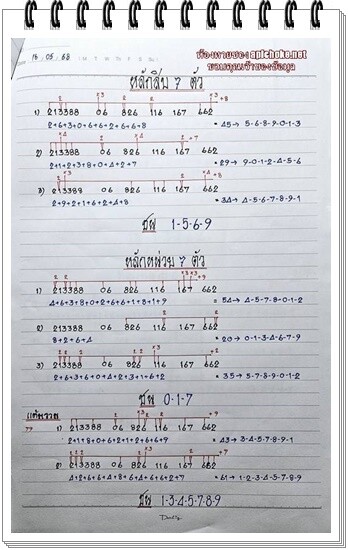 16 , 05 , 68
ห้องหวยซอง apichoke.net
ขอบคุณเจ้าของข้อมูล
หลักสิบ 7 ตัว
1) 213388 06 826 116 167 662 +8
2+6+3+0+6+6+2+6+6+8 = 45 → 5-6-8-9-0-1-3
2) 213388 06 826 116 167 662 +7
2+1+2+3+8+0+4+2+7 = 29 → 9-0-1-2-4-5-6
3) 213388 06 826 116 167 662 +8
2+9+2+1+6+2+4+8 = 34 → 4-5-6-7-8-9-1
ชน 1-5-6-9
หลักหน่วย 7 ตัว
1) 213388 06 826 116 167 662 +9
4+6+3+8+0+2+6+6+1+8+1+9 = 54 → 4-5-7-8-0-1-2
2) 213388 06 826 116 167 662
8+2+6+4 = 20 → 0-1-3-4-6-7-9
3) 213388 06 826 116 167 662 +2
2+6+3+6+0+4+2+3+1+6+2 = 35 → 5-7-8-9-0-1-2
ชน 0-1-7
แต้มรวม
1) 213388 06 826 116 167 662 +9
2+1+8+0+6+2+1+2+6+6+9 = 43 → 3-4-5-7-8-9-1
2) 213388 06 826 116 167 662 +7
4+2+6+6+4+8+6+4+6+6+2+7 = 61 → 1-2-3-4-5-7-8-9
ชน 1-3-4-5-7-8-9